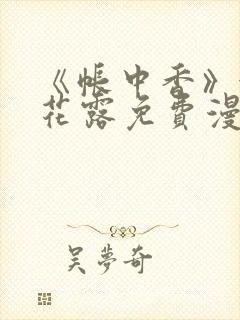 《帐中香》
花露免费漫
吴梦奇